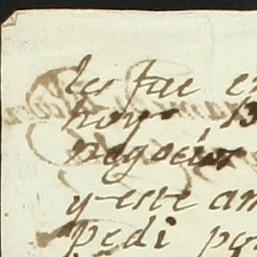 les fue en
hoyo 13
negocio
y este am
pedi po